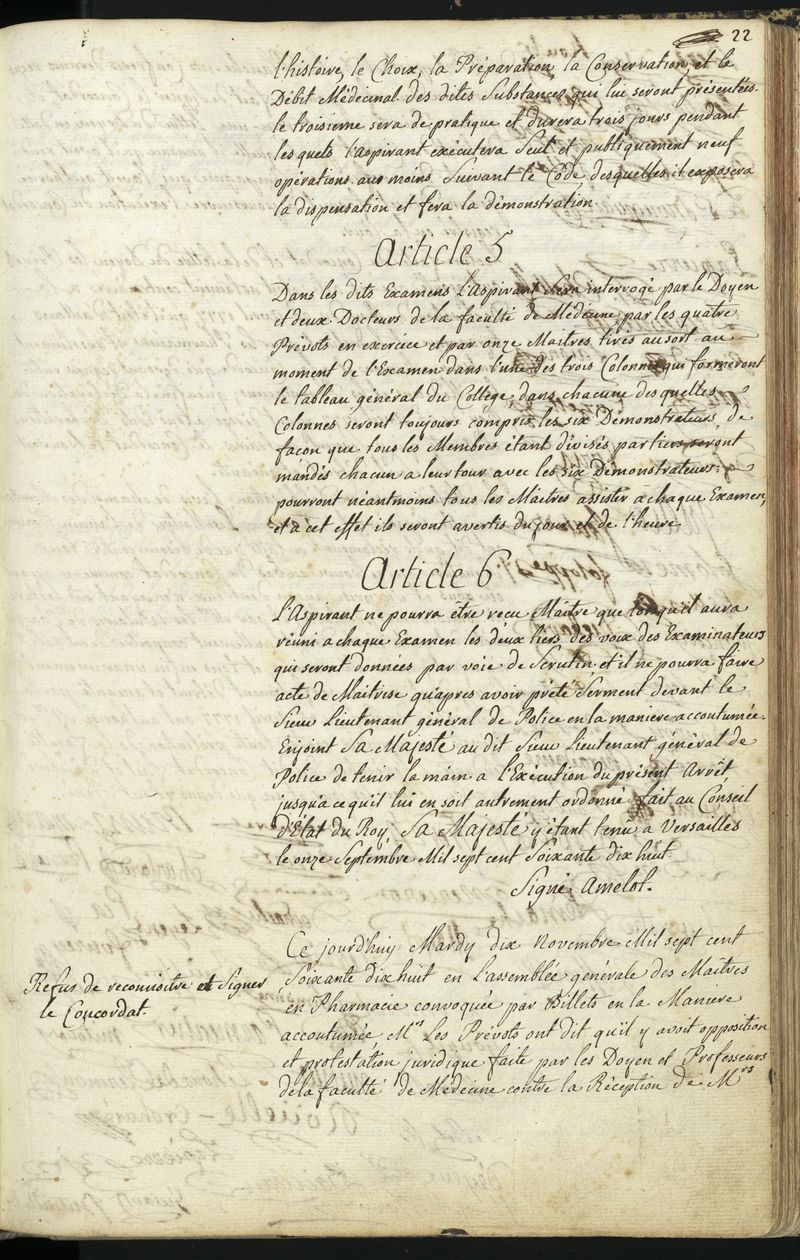 22
l'histoire, le Choix, la Préparation, la Conservation et le
Débit Médecinal des dites Substances qui lui seront présentées.
le troisieme sera de pratique et durera trois jours pendant
lesquels l'aspirant exécutera Seul et publiquement neuf
opérations au moins Suivant le Code, desquelles il exposera
la dispensation et fera la démonstration.
Article 5
Dans les dits Examens l'Aspirant Sera interrogé par le Doyen
et deux Docteurs de la faculté de Médecine par les quatre
Prévots en exercice et par onze Maitres tirés au sort au
moment de l'Examen dans l'une des trois Colonnes qui formeront
le tableau général du College, dans chacune des quelles
Colonnes seront toujours compris les six Démonstrateurs, de
façon que tous les Membres étant divisés par tiers seront
mandés chacun a leur tour avec les six Démonstrateurs;
pourront néantmoins tous les Maitres assister a chaque Examen,
et à cet effet ils seront avertis du jour et de l'heure.
Article 6
L'Aspirant ne pourra être recu Maître que lorsqu'il aura
réuni a chaque Examen les deux tiers des voix des Examinateurs
qui seront données par voie de Scrutin et il ne pourra faire
acte de Maitrise qu'apres avoir prêté Serment devant le
Sieur Lieutenant général de Police en la maniere accoutumée.
Enjoint Sa Majesté au dit Sieur Lieutenant général de
Police de tenir la main a l'Exécution du présent Arrêt,
jusqu'a ce qu'il lui en soit autrement ordonné fait au Conseil
d'État du Roy, Sa Majesté y étant tenu a Versailles
le onze Septembre Mil sept cent Soixante dix huit
Signé Amelot.
Ce jourd'huy Mardy dix Novembre Mil sept cent
Soixante dix huit en l'assemblée générale des Maîtres
en Pharmacie convoquée par Billets en la Maniere
accoutumée, Mrs Les Prévots ont dit qu'il y avoit opposition
et protestation juridique faite par les Doyen et Professeurs
de la faculté de Médecine contre la Réception de Mrs
Refus de reconnoitre et Signer
le Concordat.